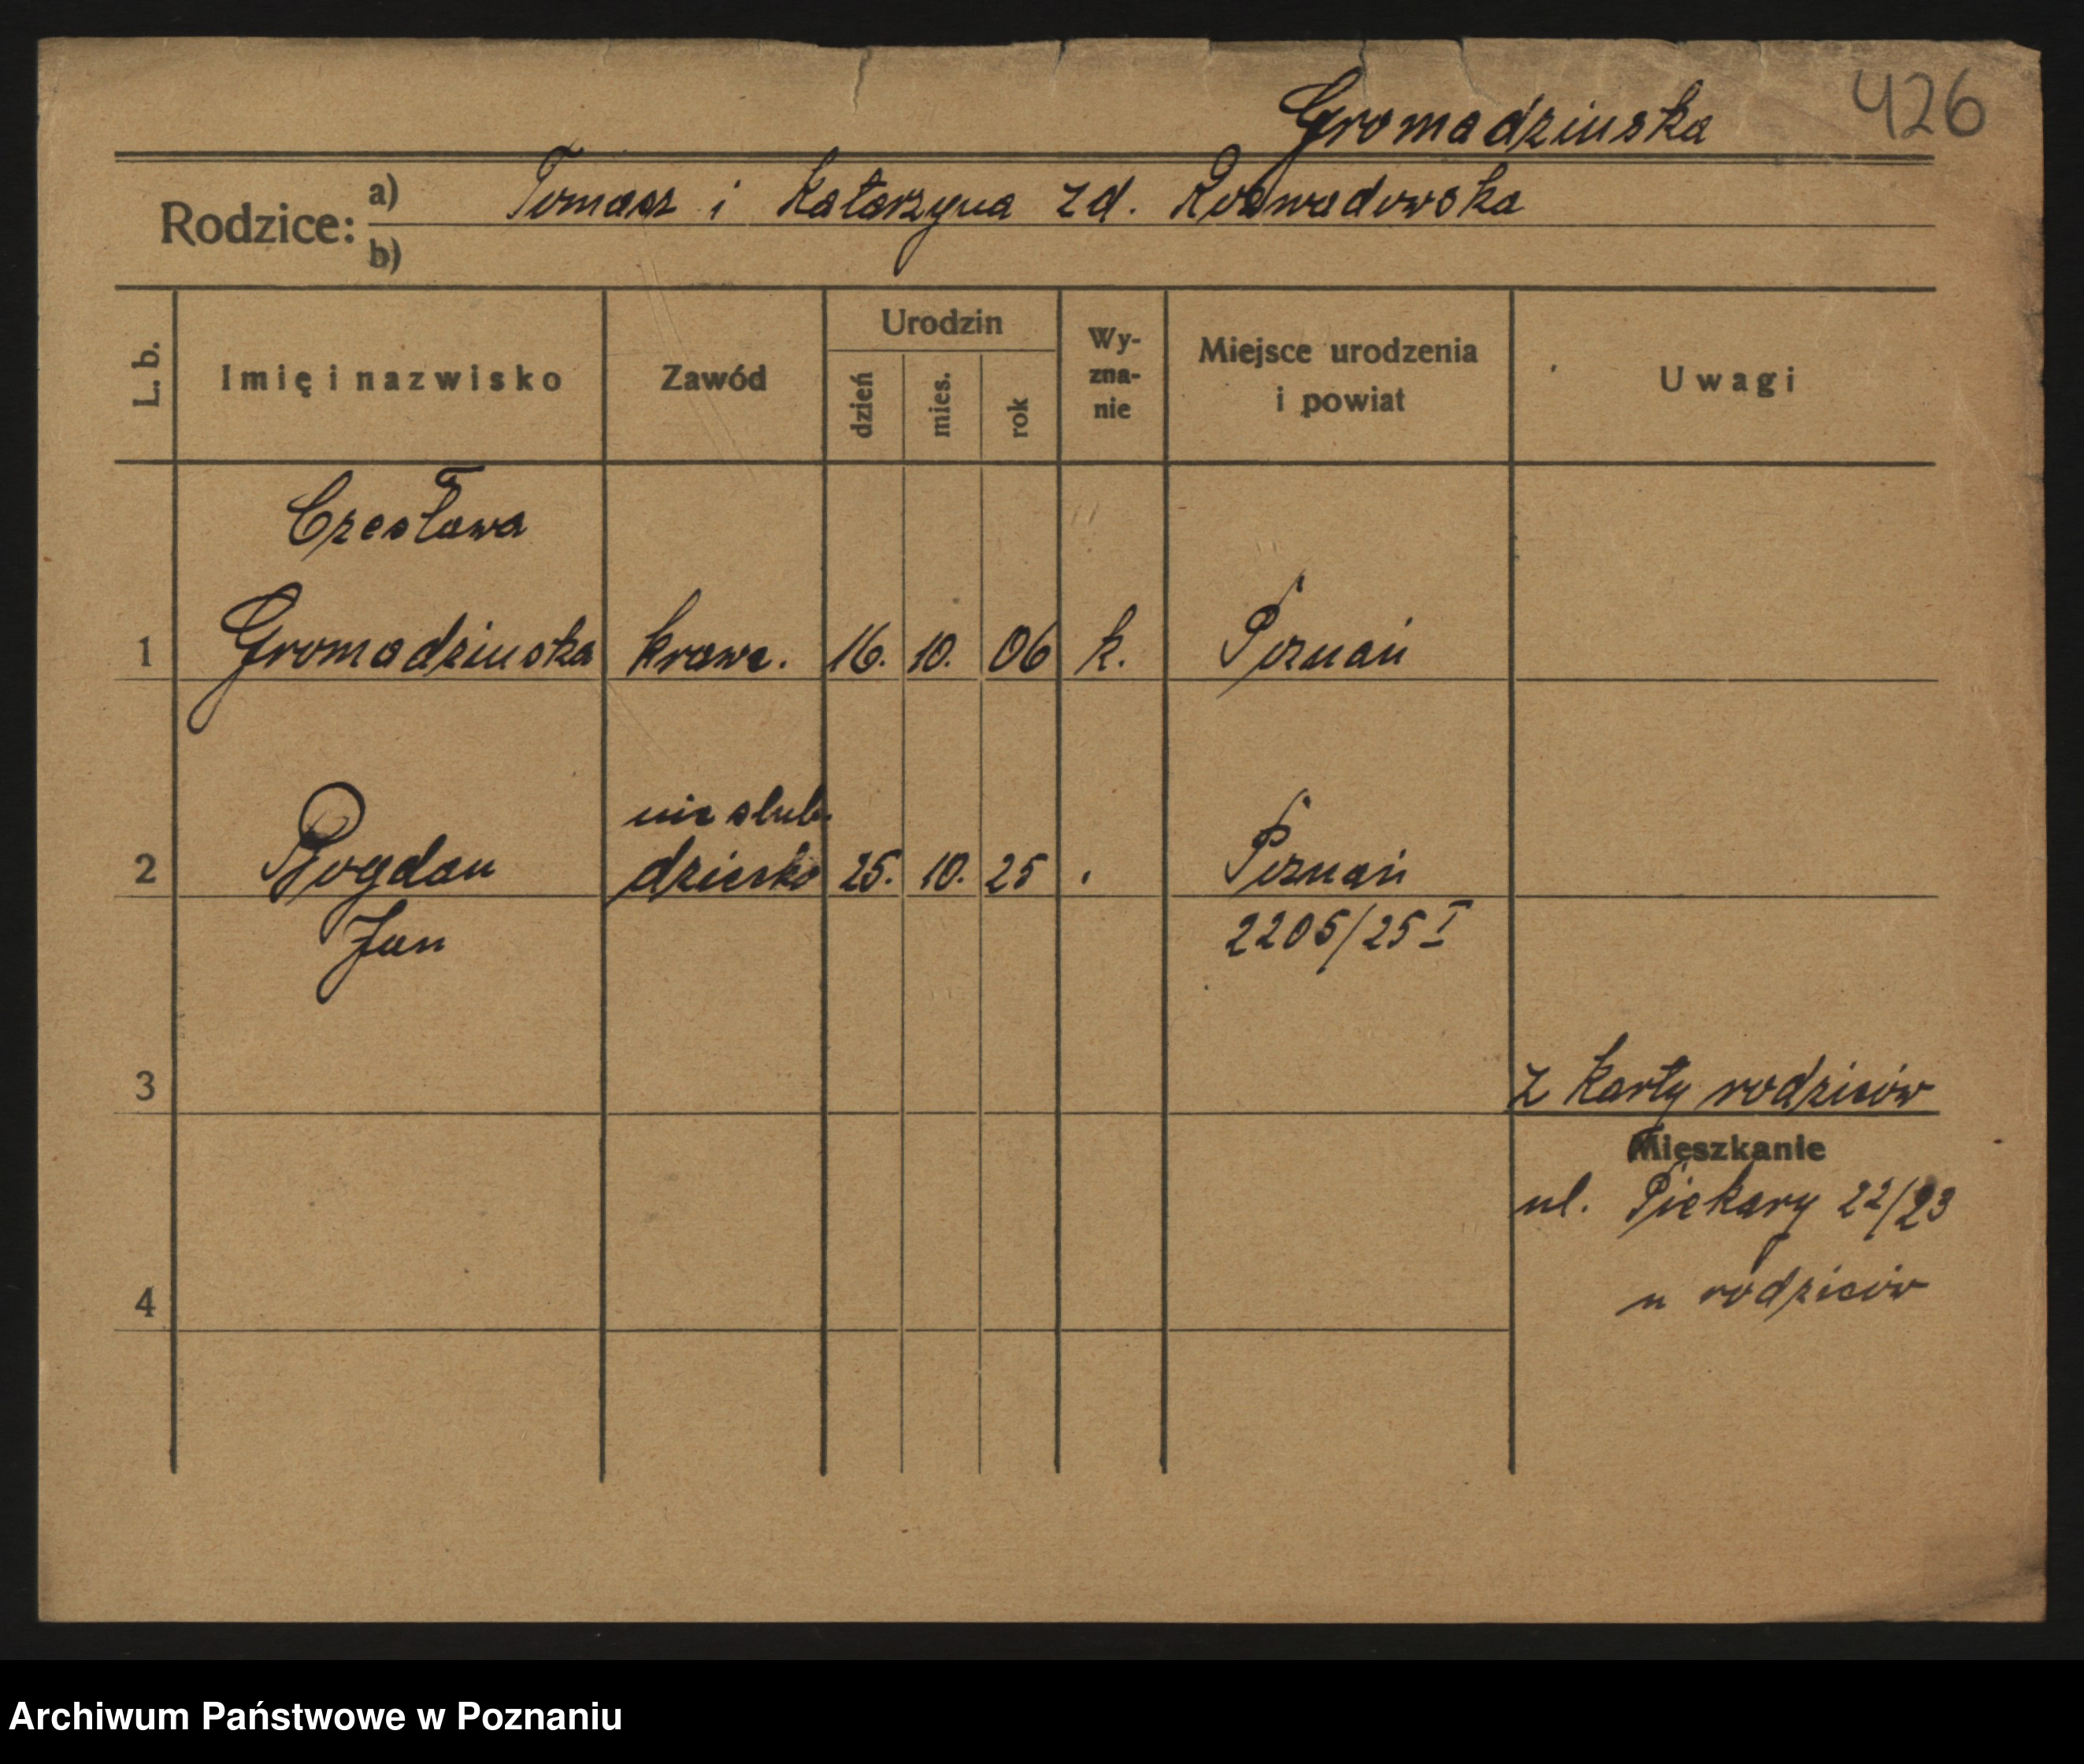 426
Gromadzinska
Rodzice: a) Tomasz i Katarzyna zd. Rozwadowska
b)
L. b. Imię i nazwisko Zawód Urodzin dzień mies. rok Wy-zna-nie Miejsce urodzenia i powiat Uwagi
Czesława
1 Gromadzinska krawc. 16. 10. 06 k. Poznań
nieślub.
2 Bogdan dziecko 25. 10. 25 Poznań
Jan 2205/25 I
3 z karty rodziców
Mieszkanie
ul. Piekary 22/23
4 u rodziców
Archiwum Państwowe w Poznaniu